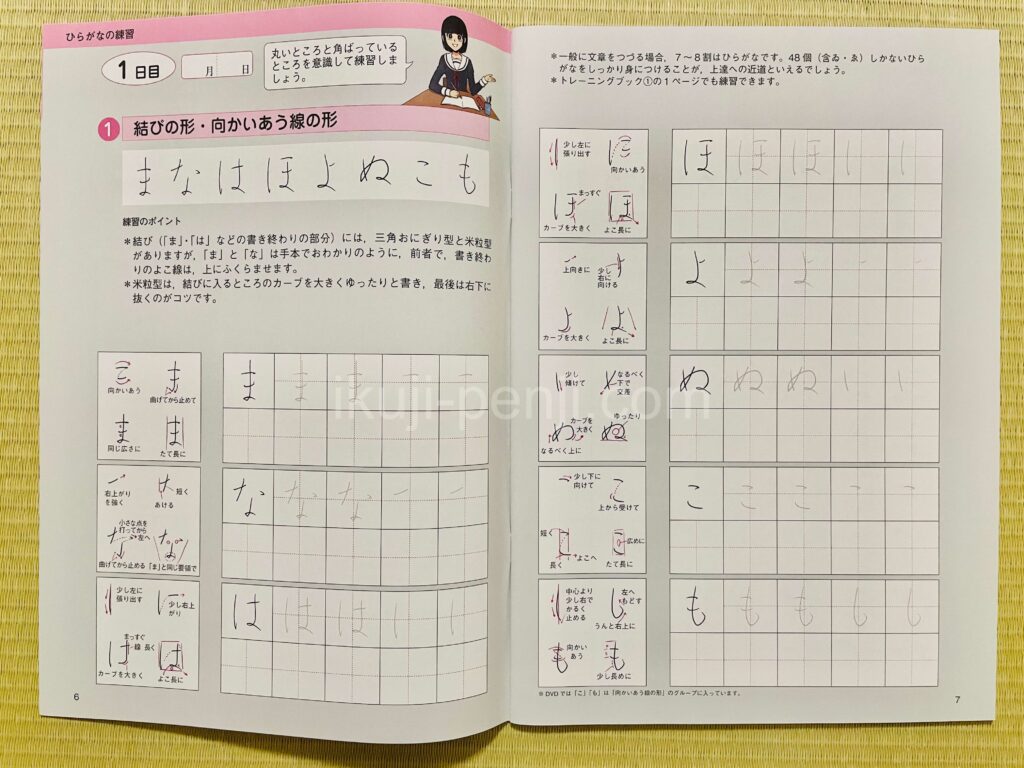 ひらがなの練習
1日目
月 日
丸いところと角ばっている
ところを意識して練習しま
しょう。
1 結びの形・向かいあう線の形
まなはほよぬこも
練習のポイント
＊結び（「ま」・「は」などの書き終わりの部分）には，三角おにぎり型と米粒型
がありますが，「ま」と「な」は手本でおわかりのように，前者で，書き終わ
りのよこ線は，上にふくらませます。
＊米粒型は，結びに入るところのカーブを大きくゆったりと書き，最後は右下に
抜くのがコツです。
向かいあう
曲げてから止めて
同じ広さに
たて長に
ま ま ま
右上がり
を強く
短く
あける
小さな点を
打ってから
左へ
曲げてから止める
「ま」と同じ要領で
な な な
少し左に
張り出す
少し右上
がり
まっすぐ
線 長く
カーブを大きく
よこ長に
は は は
6
＊一般に文章をつづる場合，7～8割はひらがなです。48個（含ゐ・ゑ）しかないひら
がなをしっかり身につけることが，上達への近道といえるでしょう。
＊トレーニングブック①の1ページでも練習できます。
少し左に
張り出す
向かいあう
まっすぐ
カーブを大きく
よこ長に
ほ ほ ほ
上向きに
少し
右に
向ける
カーブを大きく
よこ長に
よ よ よ
少し
傾けて
なるべく
下で
交差
カーブを
大きく
ゆったり
なるべく上に
ぬ ぬ ぬ
少し下に
向けて
上から受けて
短く
長く
よこへ
広めに
たて長に
こ こ こ
中心より
少し右で
かるく
止める
左へ
もどす
うんと右上に
向かい
あう
少し長めに
も も も
※DVDでは「こ」「も」は「向かいあう線の形」のグループに入っています。
7
ikuji-penji.com